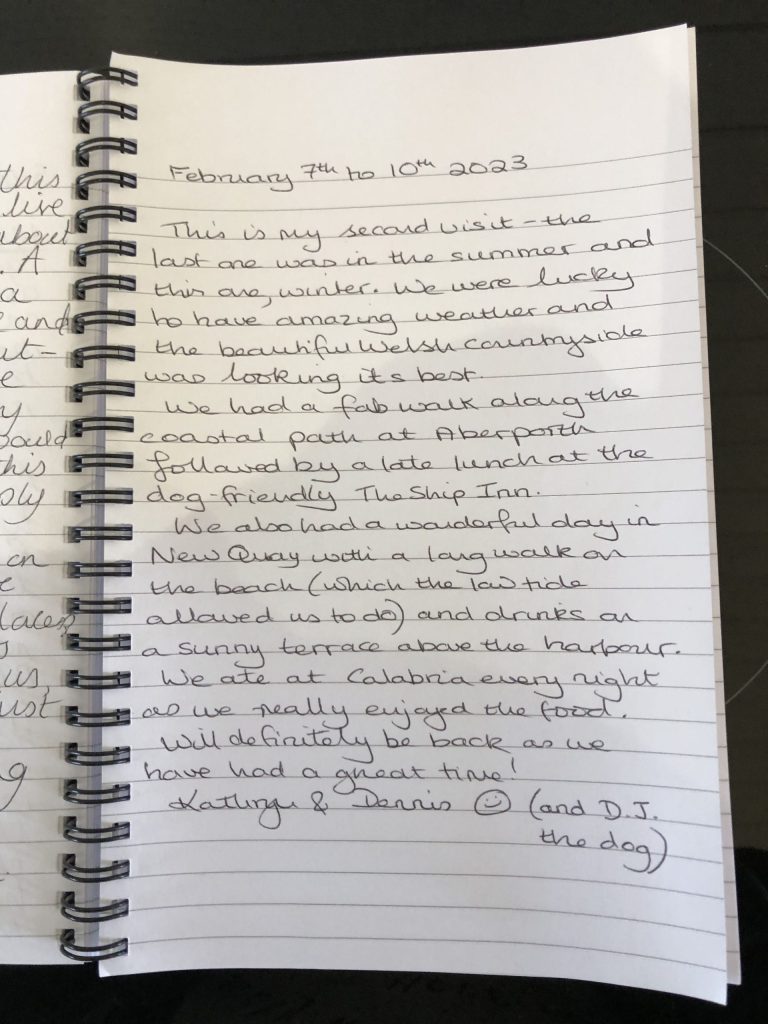 this
live
about
. A
a
and
ut-
e
y
ould
his
ply
on
e
laces
s
us,
ust
g
February 7th to 10th 2023
This is my second visit - the
last one was in the summer and
this one, winter. We were lucky
to have amazing weather and
the beautiful Welsh countryside
was looking its best.
We had a fab walk along the
coastal path at Aberporth
followed by a late lunch at the
dog-friendly The Ship Inn.
We also had a wonderful day in
New Quay with a long walk on
the beach (which the low tide
allowed us to do) and drinks on
a sunny terrace above the harbour.
We ate at Calabria every night
as we really enjoyed the food.
Will definitely be back as we
have had a great time!
Kathryn & Dennis ☺ (and D.J.
the dog)